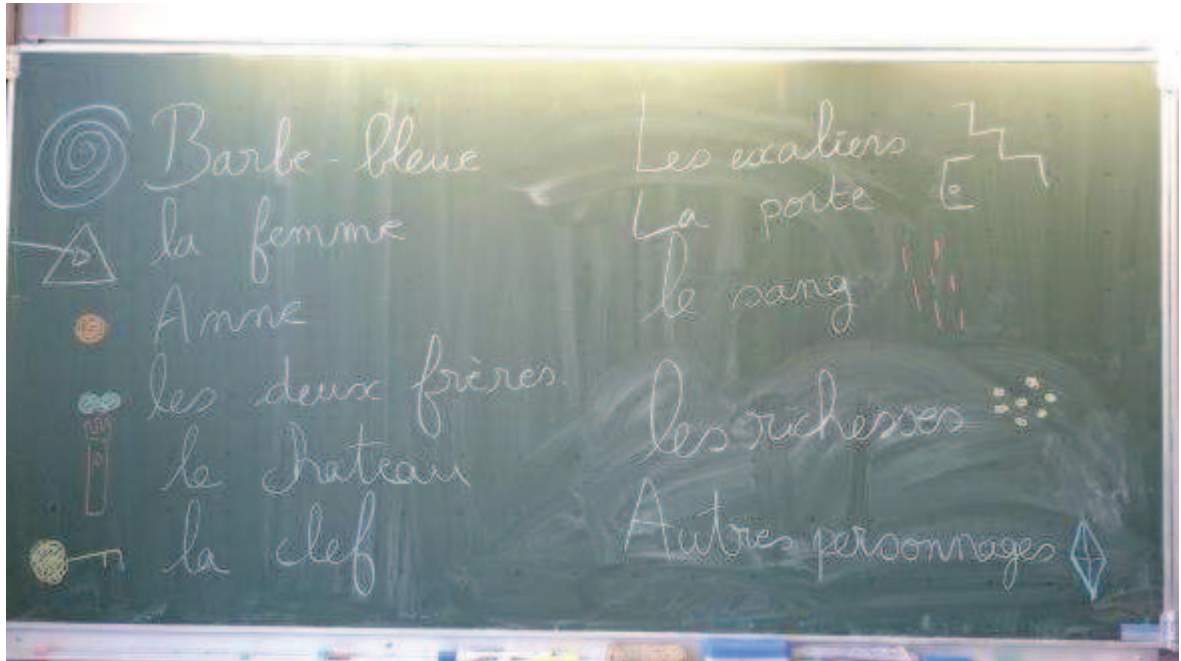 Barbe-bleue
la femme
Anne
les deux frères
le chateau
la clef
Les escaliers
La porte
le sang
les richesses
Autres personnages